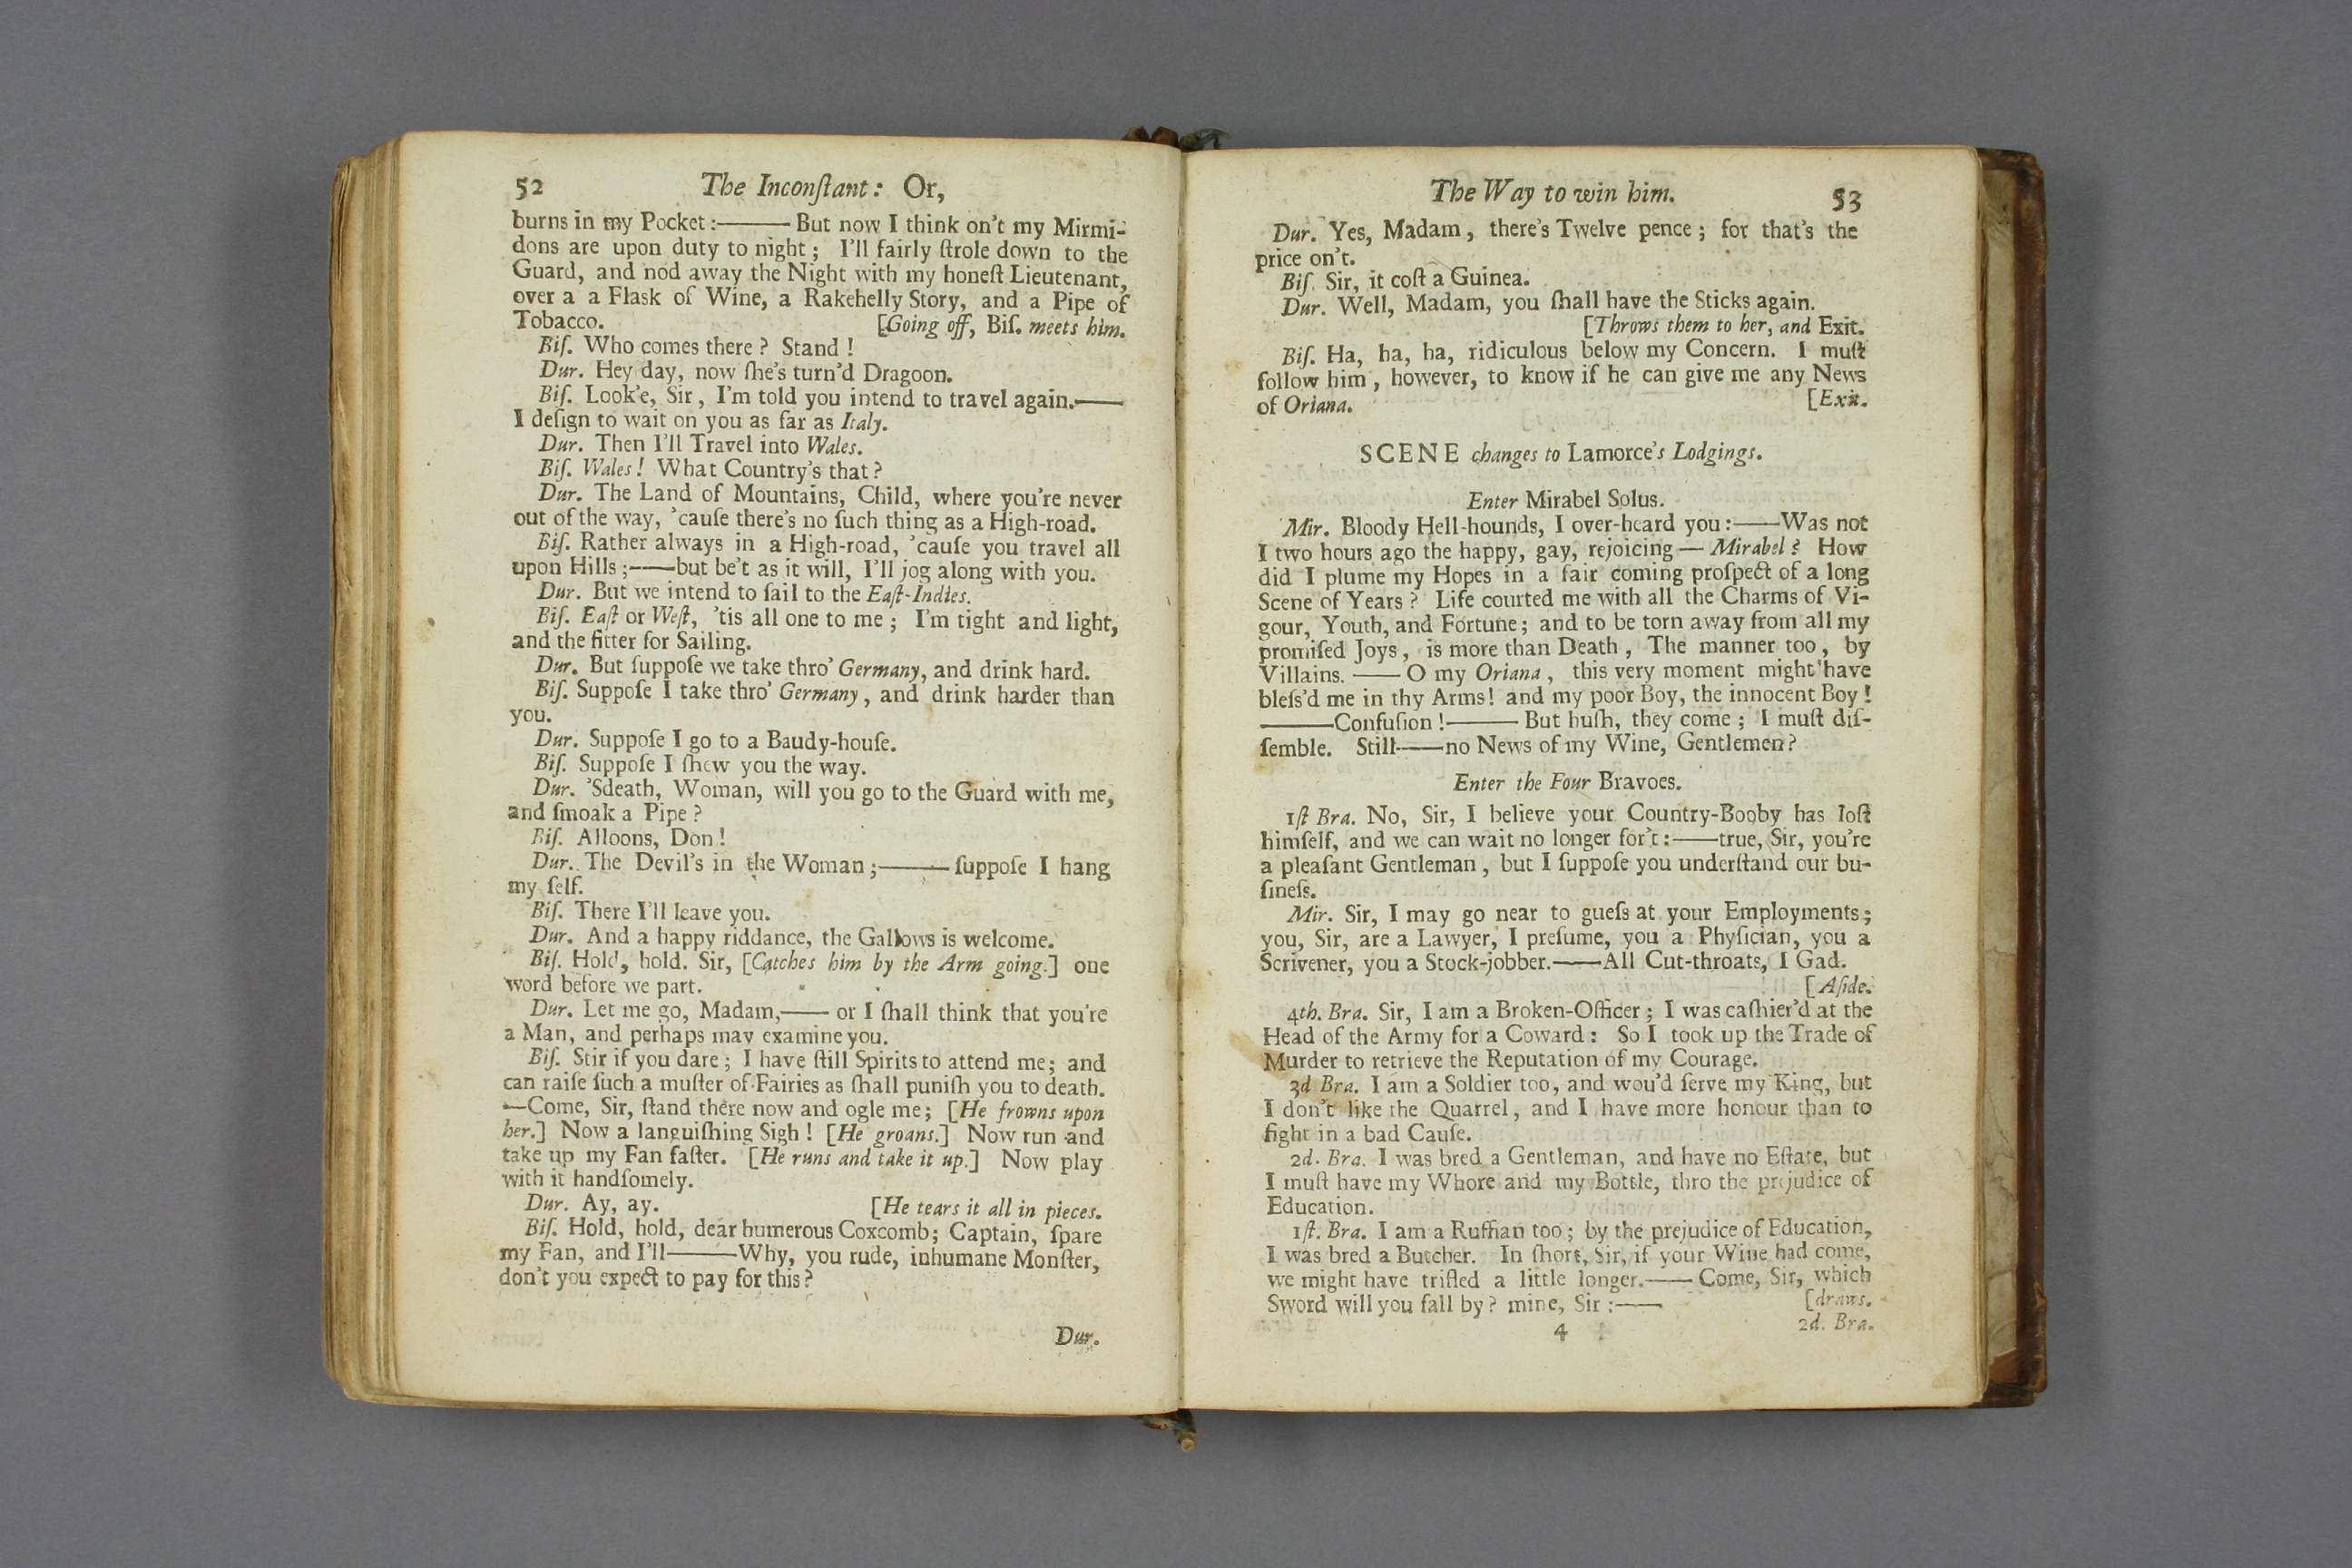 52 The Inconſtant: Or,
burns in my Pocket:——— But now I think on't my Mirmi-
dons are upon duty to night; I'll fairly ſtrole down to the
Guard, and nod away the Night with my honeſt Lieutenant,
over a a Flask of Wine, a Rakehelly Story, and a Pipe of
Tobacco. [Going off, Biſ. meets him.
Biſ. Who comes there? Stand!
Dur. Hey day, now ſhe's turn'd Dragoon.
Biſ. Look'e, Sir, I'm told you intend to travel again.——
I deſign to wait on you as far as Italy.
Dur. Then I'll Travel into Wales.
Biſ. Wales! What Country's that?
Dur. The Land of Mountains, Child, where you're never
out of the way, 'cauſe there's no ſuch thing as a High-road.
Biſ. Rather always in a High-road, 'cauſe you travel all
upon Hills;——but be't as it will, I'll jog along with you.
Dur. But we intend to ſail to the Eaſt-Indies.
Biſ. Eaſt or Weſt, 'tis all one to me; I'm tight and light,
and the fitter for Sailing.
Dur. But ſuppoſe we take thro' Germany, and drink hard.
Biſ. Suppoſe I take thro' Germany, and drink harder than
you.
Dur. Suppoſe I go to a Baudy-houſe.
Biſ. Suppoſe I ſhew you the way.
Dur. 'Sdeath, Woman, will you go to the Guard with me,
and ſmoak a Pipe?
Biſ. Alloons, Don!
Dur. The Devil's in the Woman;——— ſuppoſe I hang
my ſelf.
Biſ. There I'll leave you.
Dur. And a happy riddance, the Gallows is welcome.
Biſ. Hold, hold. Sir, [Catches him by the Arm going.] one
word before we part.
Dur. Let me go, Madam,—— or I ſhall think that you're
a Man, and perhaps may examine you.
Biſ. Stir if you dare; I have ſtill Spirits to attend me; and
can raiſe ſuch a muſter of Fairies as ſhall puniſh you to death.
—Come, Sir, ſtand there now and ogle me; [He frowns upon
her.] Now a languiſhing Sigh! [He groans.] Now run and
take up my Fan faſter. [He runs and take it up.] Now play
with it handſomely.
Dur. Ay, ay. [He tears it all in pieces.
Biſ. Hold, hold, dear humerous Coxcomb; Captain, ſpare
my Fan, and I'll———Why, you rude, inhumane Monſter,
don't you expect to pay for this?
Dur.
The Way to win him. 53
Dur. Yes, Madam, there's Twelve pence; for that's the
price on't.
Biſ. Sir, it coſt a Guinea.
Dur. Well, Madam, you ſhall have the Sticks again.
[Throws them to her, and Exit.
Biſ. Ha, ha, ha, ridiculous below my Concern. I muſt
follow him, however, to know if he can give me any News
of Oriana. [Exit.
SCENE changes to Lamorce's Lodgings.
Enter Mirabel Solus.
Mir. Bloody Hell-hounds, I over-heard you:——Was not
I two hours ago the happy, gay, rejoicing — Mirabel? How
did I plume my Hopes in a fair coming proſpect of a long
Scene of Years? Life courted me with all the Charms of Vi-
gour, Youth, and Fortune; and to be torn away from all my
promiſed Joys, is more than Death, The manner too, by
Villains. —— O my Oriana, this very moment might have
bleſs'd me in thy Arms! and my poor Boy, the innocent Boy!
———Confuſion!——— But huſh, they come; I muſt diſ-
ſemble. Still——no News of my Wine, Gentlemen?
Enter the Four Bravoes.
1ſt Bra. No, Sir, I believe your Country-Booby has loſt
himſelf, and we can wait no longer for't:——true, Sir, you're
a pleaſant Gentleman, but I ſuppoſe you underſtand our bu-
ſineſs.
Mir. Sir, I may go near to gueſs at your Employments;
you, Sir, are a Lawyer, I preſume, you a Phyſician, you a
Scrivener, you a Stock-jobber.——All Cut-throats, I Gad.
[Aſide.
4th. Bra. Sir, I am a Broken-Officer; I was caſhier'd at the
Head of the Army for a Coward: So I took up the Trade of
Murder to retrieve the Reputation of my Courage.
3d Bra. I am a Soldier too, and wou'd ſerve my King, but
I don't like the Quarrel, and I have more honour than to
fight in a bad Cauſe.
2d. Bra. I was bred a Gentleman, and have no Eſtate, but
I muſt have my Whore and my Bottle, thro the prejudice of
Education.
1ſt. Bra. I am a Ruffian too; by the prejudice of Education,
I was bred a Butcher. In ſhort, Sir, if your Wine had come,
we might have trifled a little longer.—— Come, Sir, which
Sword will you fall by? mine, Sir:—— [draws.
4 2d. Bra.